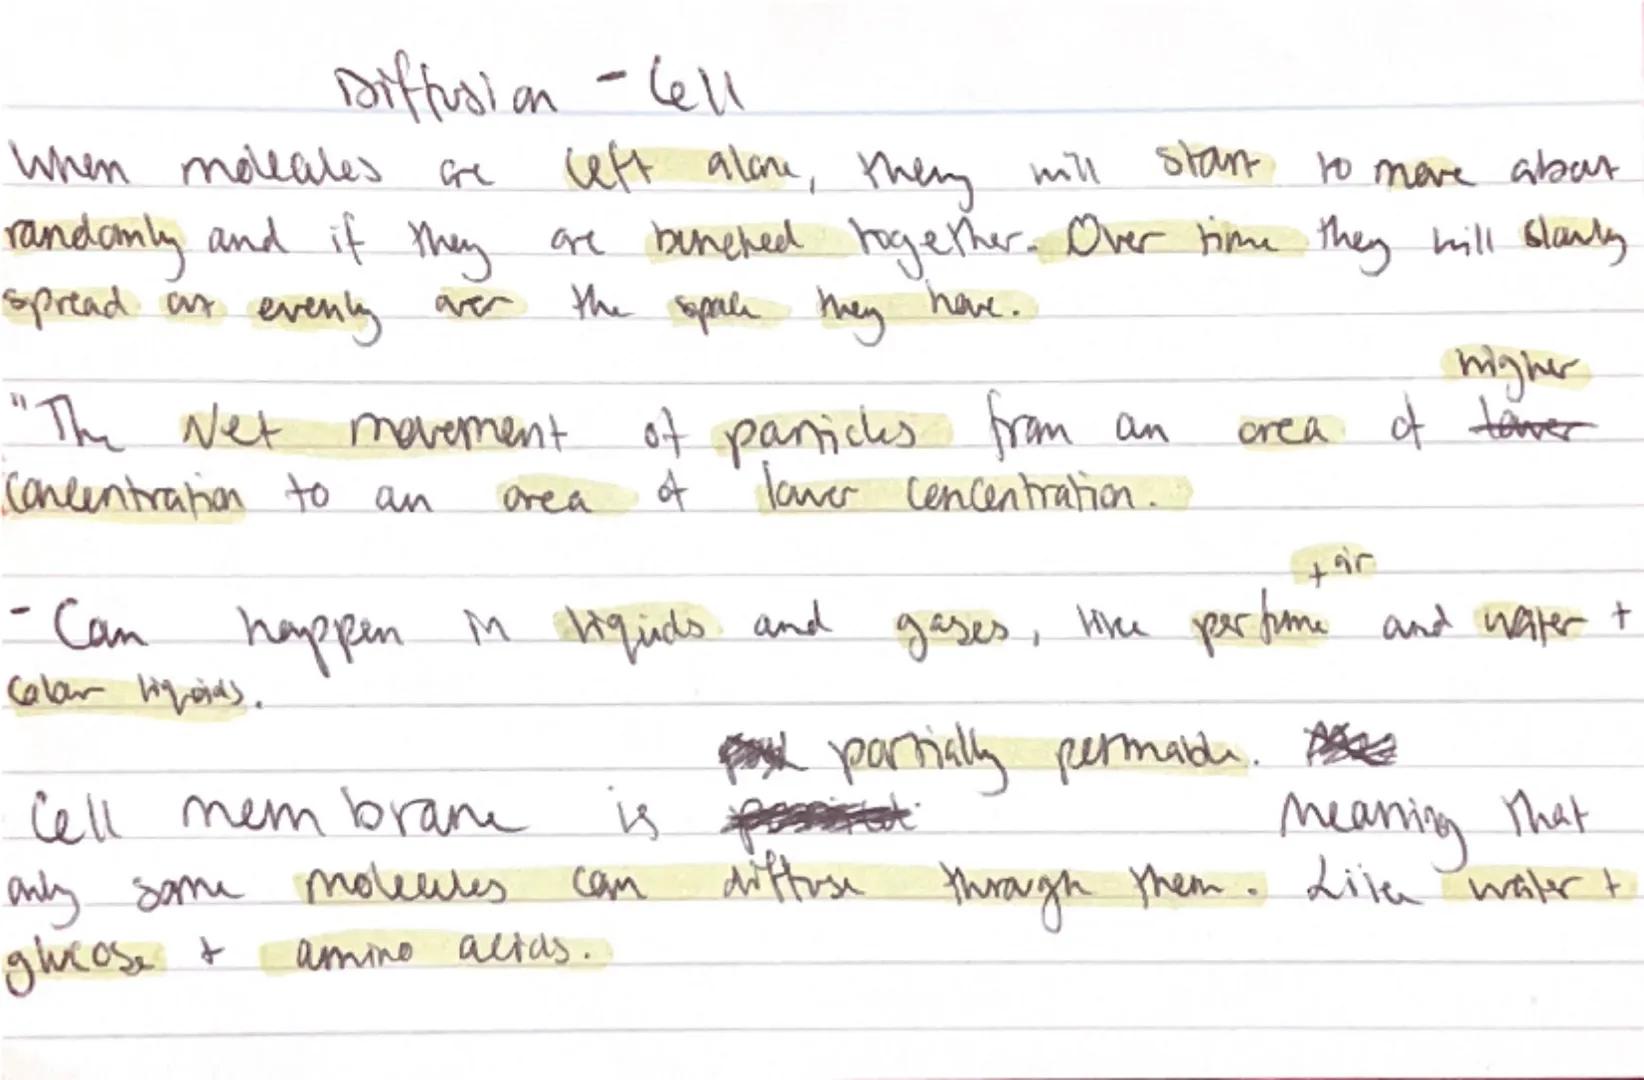 Diffusion - Cell
When molecules are left alone, they will start to move about
randomly and if they are bunched together. Over time they will slowly
spread out evenly over the space they have.
higher
"The Net movement of particles from an area of lower
concentration to an area of lower concentration.
+ air
- Can happen in liquids and gases, like perfume and water +
colour liquids.
partially permable.
Cell membrane is meaning that
only some molecules can diffuse through them. Like water +
glucose + amino acids.